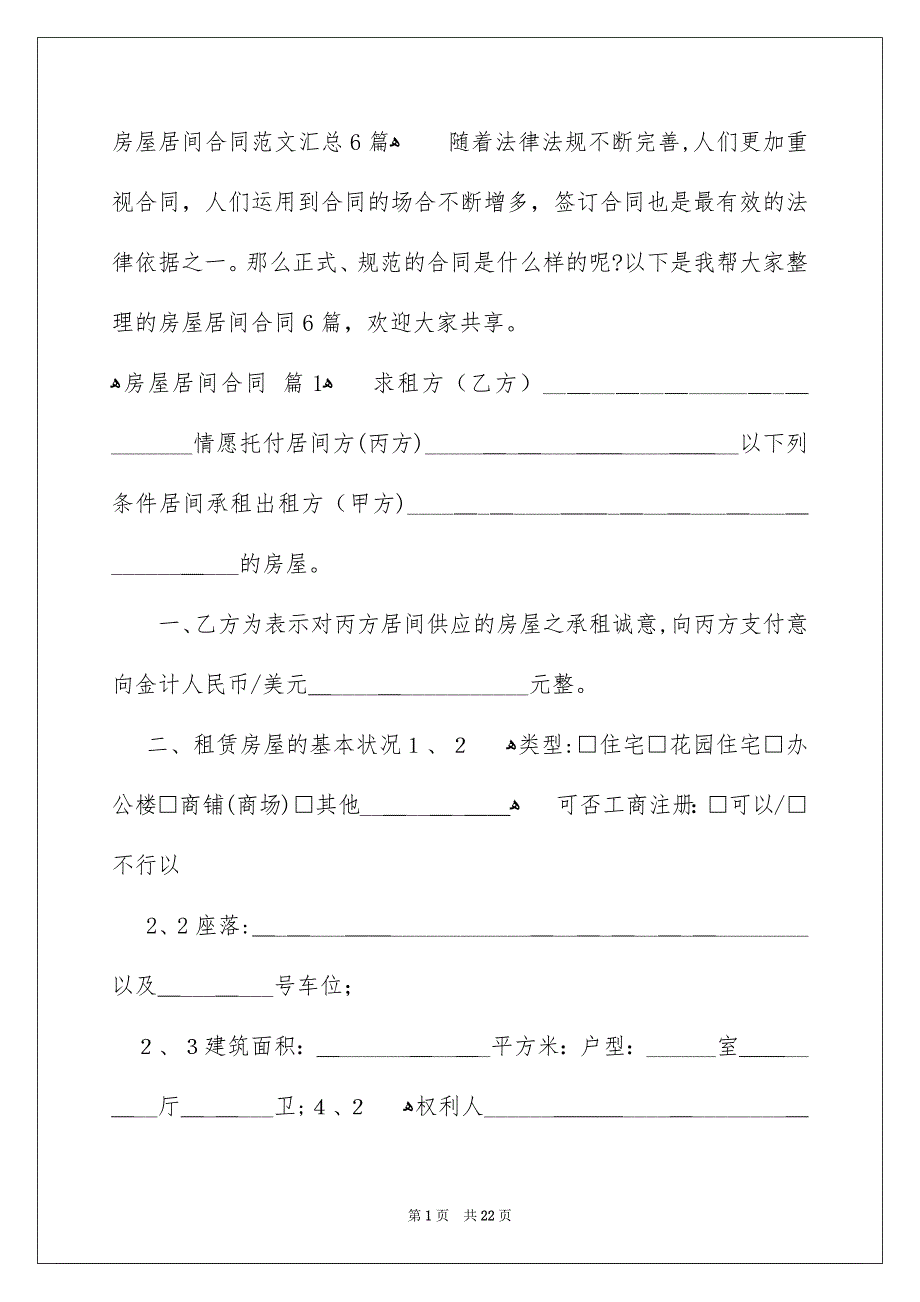 房屋居间合同范文汇总6篇ﻫ　　随着法律法规不断完善,人们更加重
视合同，人们运用到合同的场合不断增多，签订合同也是最有效的法
律依据之一。那么正式、规范的合同是什么样的呢?以下是我帮大家整
理的房屋居间合同6篇，欢迎大家共享。
ﻫ房屋居间合同 篇1ﻫ　求租方（乙方）_______________________
_______情愿托付居间方(丙方)___________________________以下列
条件居间承租出租方（甲方)__________________________________
___________的房屋。
一、乙方为表示对丙方居间供应的房屋之承租诚意,向丙方支付意
向金计人民币/美元___________________元整。
二、租赁房屋的基本状况１、２　ﻫ类型:□住宅□花园住宅□办
公楼□商铺(商场)□其他_____________ﻫ　可否工商注册：□可以/□
不行以
2、2座落:________________________________________________
以及__________号车位；
２、３建筑面积：_______________平方米：户型：______室______
____厅________卫;４、２　ﻫ权利人____________________________
第1页　共22页